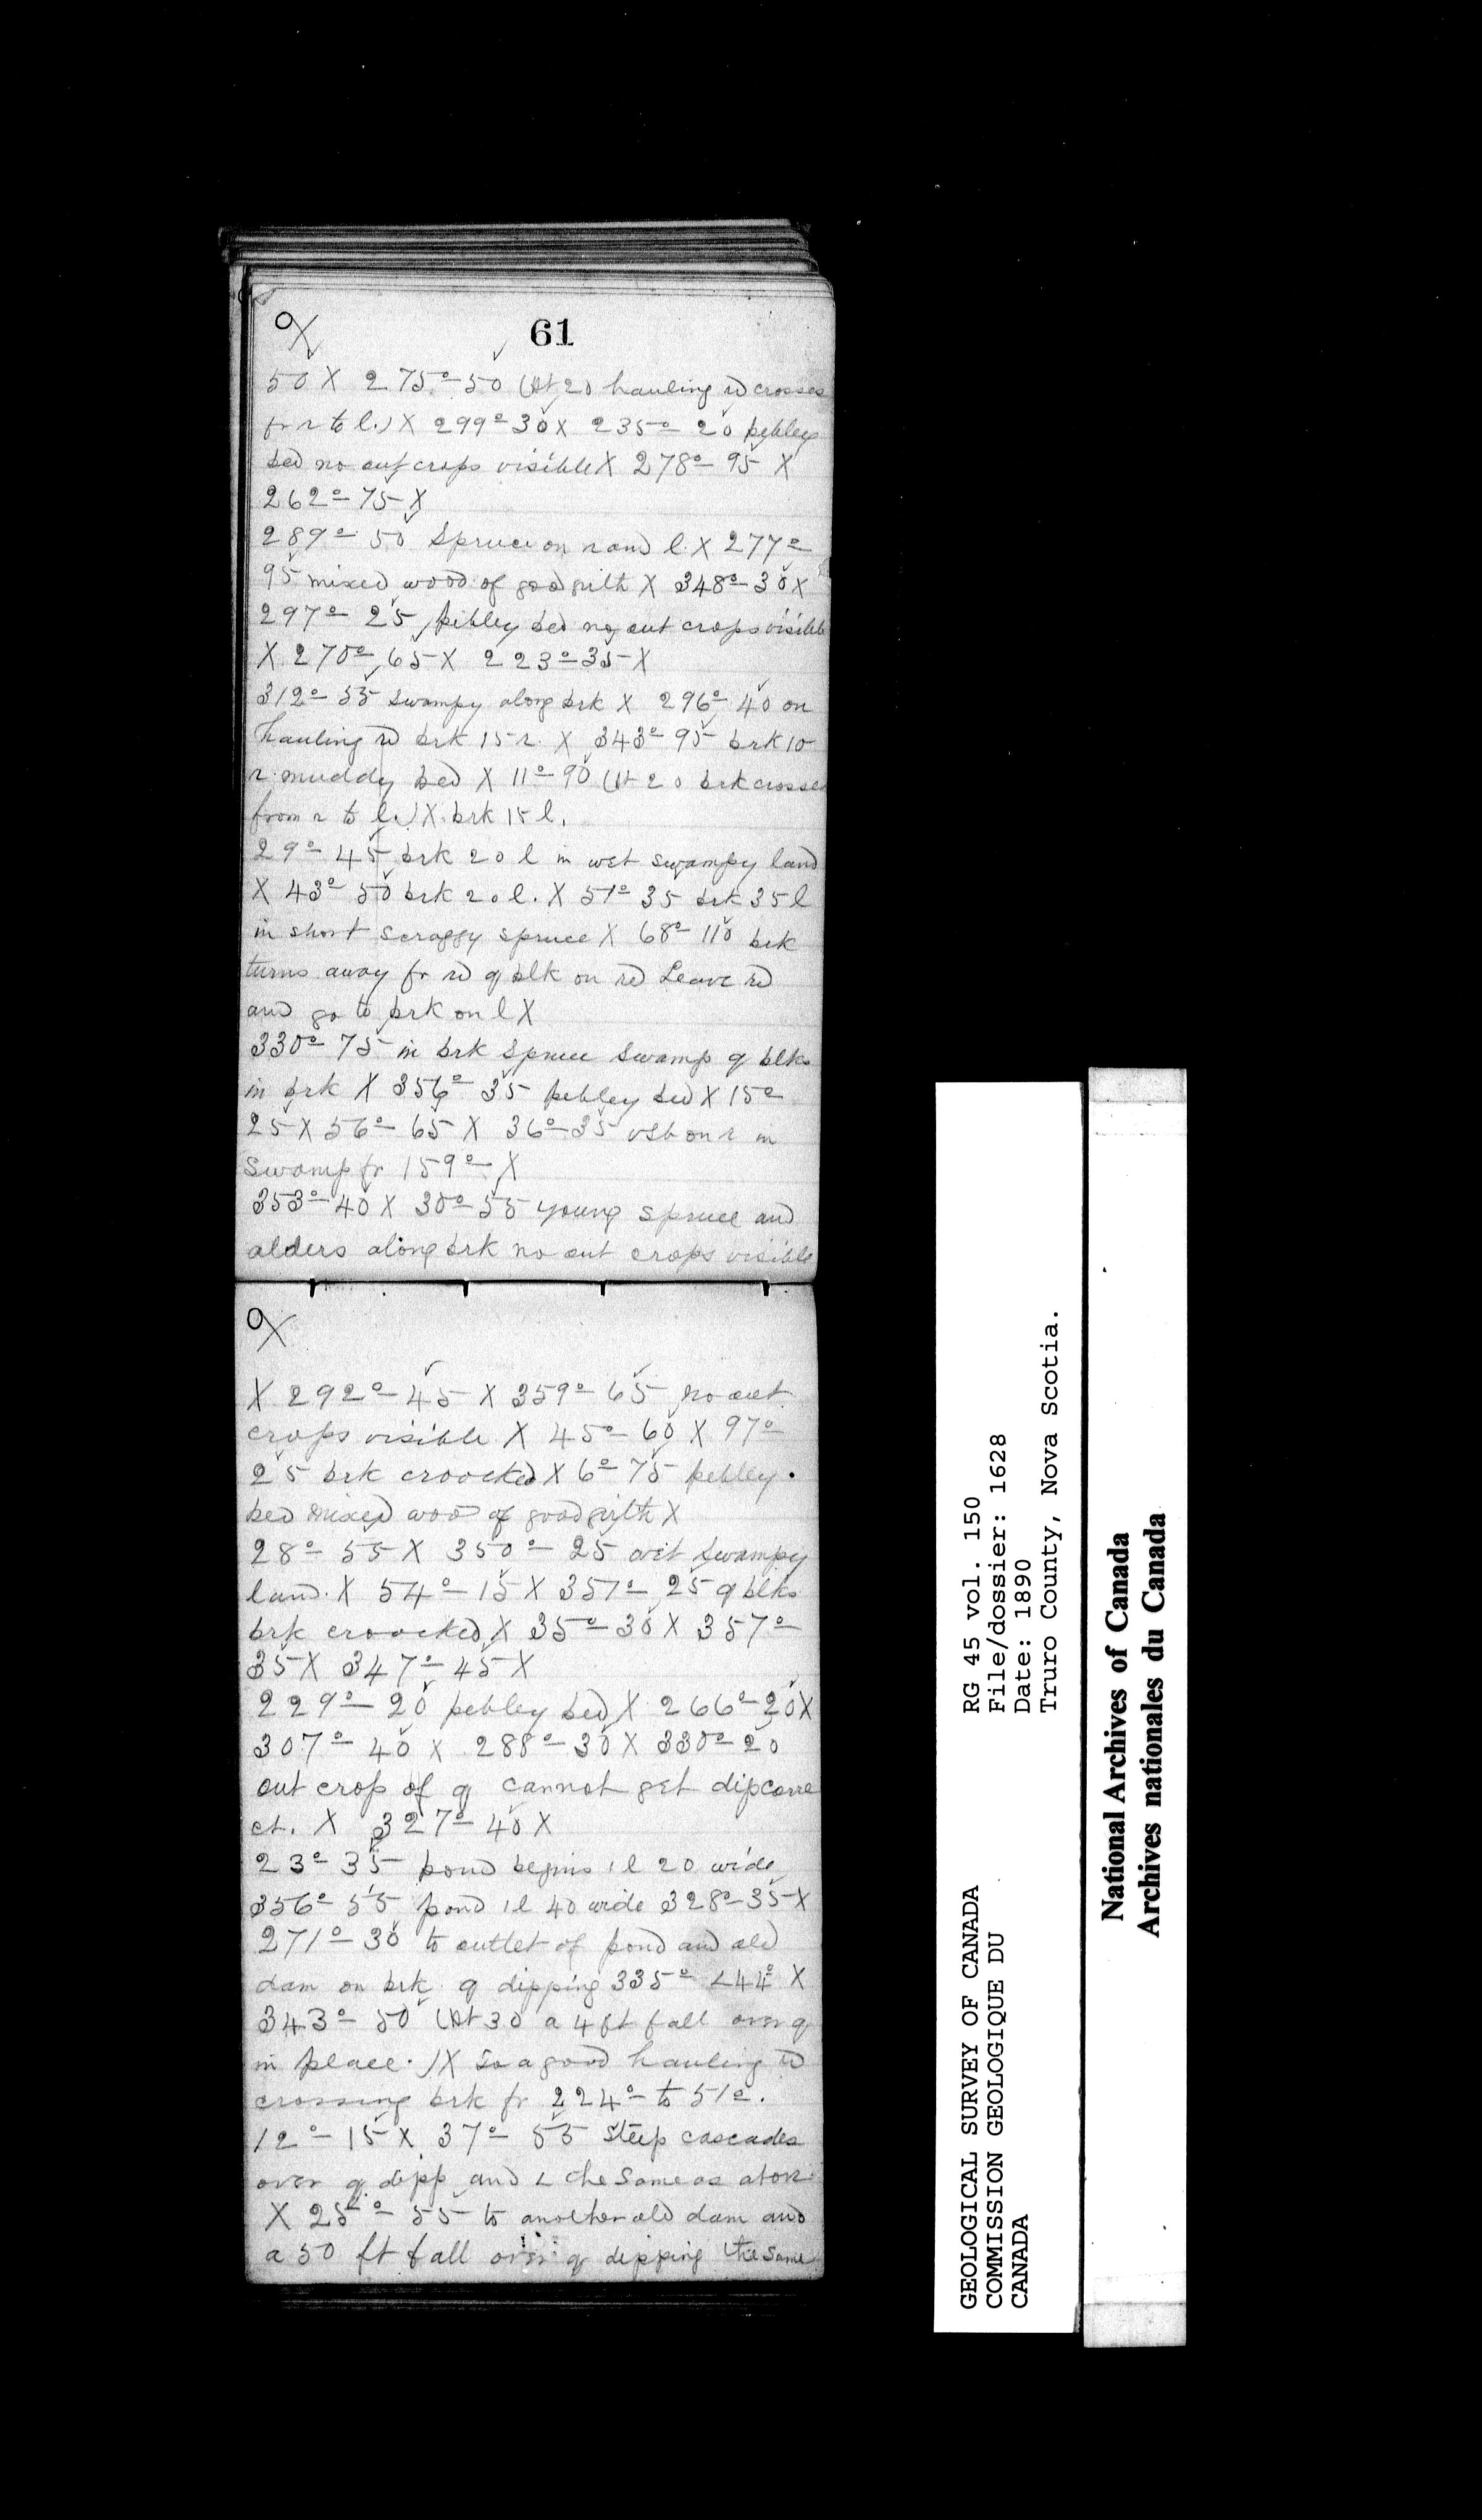 61
50 X 275°-50 (At 20 hauling rd crosses
fr r to l.) X 299°-30 X 235°-20 pebley
bed no out crops visible X 278°-95 X
262°-75 X
289°-50 Spruce on r and l. X 277°-
95 mixed wood of good girth X 348°-30 X
297°-25 pebley bed no out crops visible
X 270°-65 X 223°-35 X
312°-55 swampy along brk X 296°-40 on
hauling rd brk 15 r. X 343°-95 brk 10
r. muddy bed X 11°-90 (At 20 brk crosses
from r to l.) X brk 15 l.
29°-45 brk 20 l in wet swampy land
X 43°-50 brk 20 l. X 51°-35 brk 35 l
in short scraggy spruce X 68°-110 brk
turns away fr rd q blk on rd Leave rd
and go to brk on l X
330°-75 in brk Spruce Swamp q blks
in brk X 356°-35 pebley bed X 15°-
25 X 56°-65 X 36°-35 vsb on r in
Swamp fr 159°- X
353°-40 X 30°-55 young spruce and
alders along brk no out crops visible
X 292°-45 X 359°-65 no out
crops visible X 45°-60 X 97°-
25 brk croocked X 6°-75 pebley.
bed mixed woo of good girth X
28°-55 X 350°-25 wet swampy
land. X 54°-15 X 351°-25 q blks
brk croocked X 35°-30 X 357°-
35 X 347°-45 X
229°-20 pebley bed X 266°-20 X
307°-40 X 288°-30 X 330°-20
out crop of q cannot get dip corre
ct. X 327°-40 X
23°-35 pond begins 1 l 20 wide
356°-55 pond 1 l 40 wide 328°-35 X
271°-30 to outlet of pond and old
dam on brk q dipping 335°- <44° X
343°-50 (At 30 a 4 ft fall over q
in place.) X So a good hauling rd
crossing brk fr 224°- to 51°-.
12°-15 X 37°-55 Steep cascades
over q. dipp and < the Same as above
X 25°-55 to another old dam and
a 50 ft fall over q dipping the Same
GEOLOGICAL SURVEY OF CANADA
COMMISSION GEOLOGIQUE DU
CANADA
RG 45 vol. 150
File/dossier: 1628
Date: 1890
Truro County, Nova Scotia.
National Archives of Canada
Archives nationales du Canada